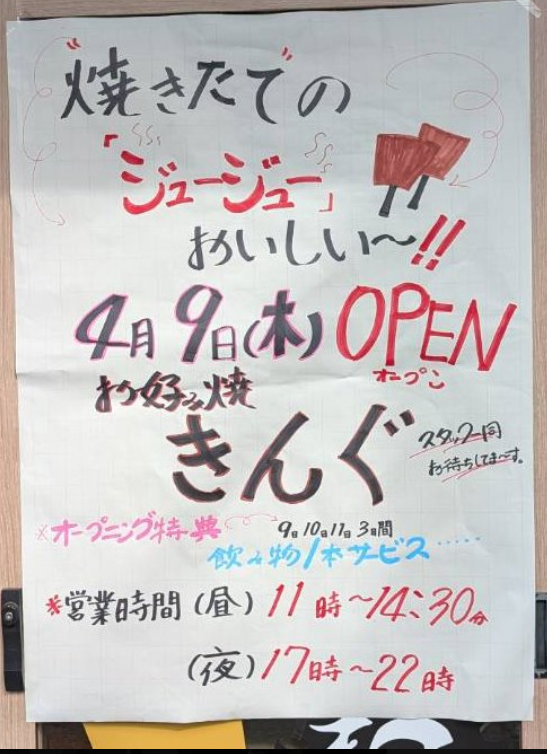 "焼きたて"の
「ジュージュー」
おいしい～!!
4月9日(木)OPEN
オープン
お好み焼
きんぐ
スタッフ一同
お待ちしてま～す。
※オープニング特典 9日10日11日3日間
飲み物1本サービス.....
※営業時間(昼)11時～14:30分
(夜)17時～22時